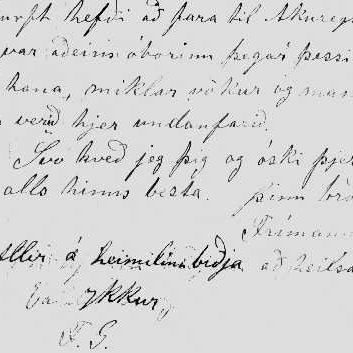 þurft hefði að fara til Akureyr
var aðeins óborinn þegar þessi
hana, miklar vökur og man
verið hjer undanfarið.
Svo kveð jeg þig og óski þjer
alls hins besta. þinn bró
Frímann
Allir á heimilinu biðja að heilsa
ykkur
F. G.